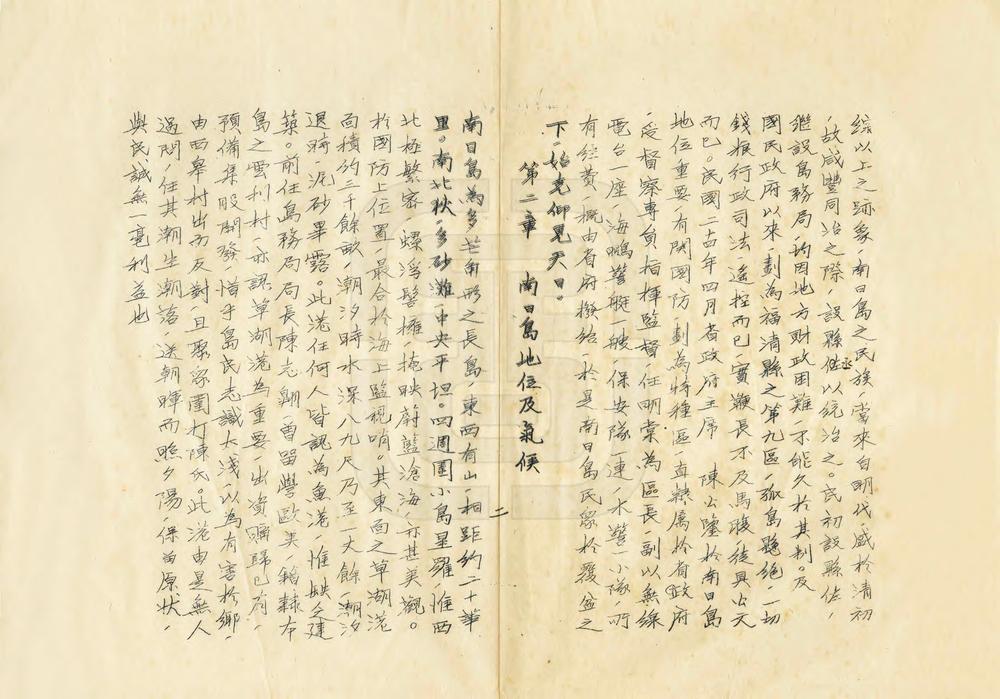 綜以上之跡象，南日島之民族，當來自明代，盛於清初
，故咸豐同治之際，設縣丞以統治之。民初設縣佐，
繼設島務局，均因地方財政困難，不能久於其制。及
國民政府以來，劃為福清縣之第九區，孤島懸絕，一切
錢粮行政司法，遙控而已，實鞭長不及馬腹徒具公文
而已。民國二十四年四月省政府主席　陳公鑒於南日島
地位重要有關國防，劃為特種區，直隸屬於省政府
，受督察專員指揮監督，任明棠為區長，副以無線
電台一座，海鵰警艇一艘，保安隊一連，水警一小隊，所
有經費，概由省府撥給，於是南日島民眾於覆盆之
下，始克仰見天日。
第二章　南日島地位及氣候
二
南日島為多芒角形之長島，東西有山，相距約二十華
里。南北狄，多砂灘中央平坦。四週圍小島星羅惟西
北極繁密，螺浮髻擁，掩映蔚藍滄海，亦甚美觀。
於國防上位置，最合於海上監視哨。其東面之草湖港
面積約三千餘畝，潮汐時水深八九尺乃至一丈餘，潮汐
退時，泥砂畢露。此港任何人皆認為魚港，惟缺之建
築。前任島務局局長陳志朝，曾留學歐美籍隸本
島之雲利村，亦認草湖港為重要，出資購歸已有，
預備集股開發，惜乎島民志識太淺，以為有害於鄉，
由西皋村出而反對，且聚眾圍打陳氏。此港由是無人
過問，任其潮生潮落，送朝暉而照夕陽，保留原狀，
與民誠無一毫利益也